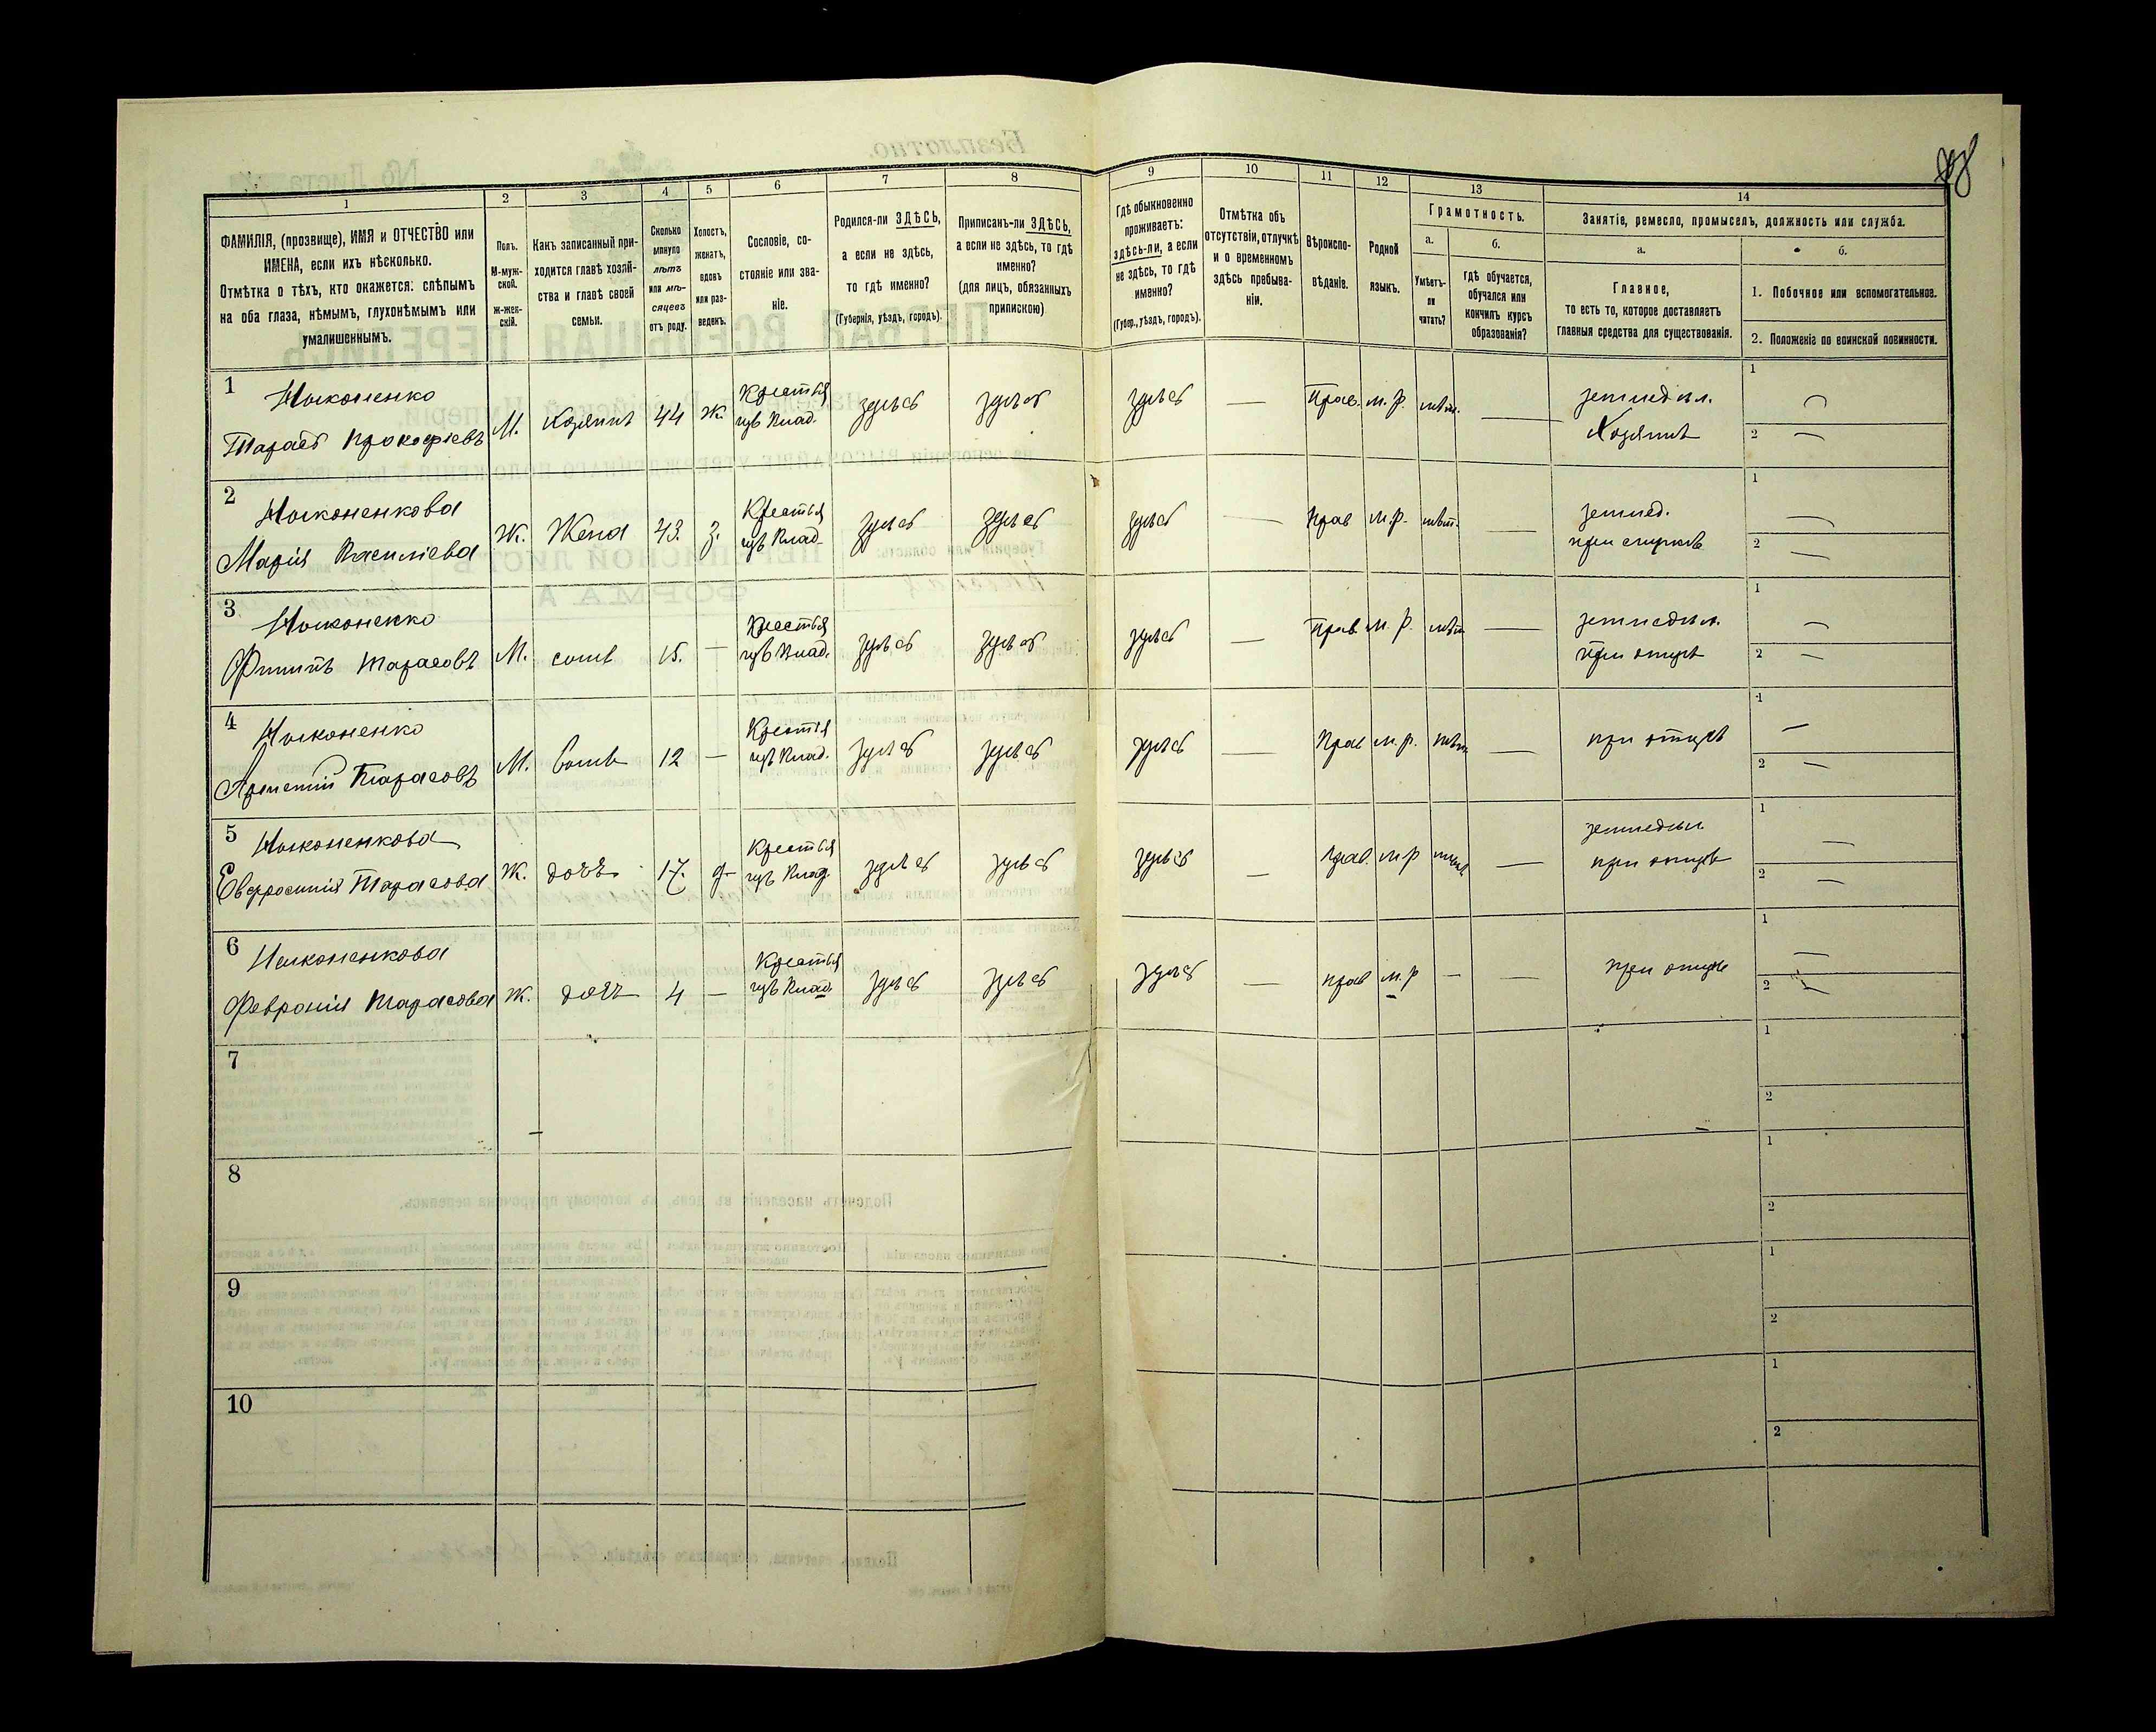 1
2
3
4
5
6
7
8
9
10
11
12
13
14
ФАМИЛІЯ, (прозвище), ИМЯ и ОТЧЕСТВО или
ИМЕНА, если ихъ нѣсколько.
Отмѣтка о тѣхъ, кто окажется: слѣпымъ
на оба глаза, нѣмымъ, глухонѣмымъ или
умалишеннымъ.
Полъ.
М-муж-
ской.
Ж-жен-
скій.
Какъ записанный при-
ходится главѣ хозяй-
ства и главѣ своей
семьи.
Сколько
минуло
лѣтъ
или мѣ-
сяцевъ
отъ роду.
Холостъ,
женатъ,
вдовъ
или раз-
веденъ.
Сословіе, со-
стояніе или зва-
ніе.
Родился-ли ЗДѢСЬ,
а если не здѣсь,
то гдѣ именно?
(Губернія, уѣздъ, городъ).
Приписанъ-ли ЗДѢСЬ,
а если не здѣсь, то гдѣ
именно?
(для лицъ, обязанныхъ
припискою)
Гдѣ обыкновенно
проживаетъ:
здѣсь-ли, а если
не здѣсь, то гдѣ
именно?
(Губер., уѣздъ, городъ).
Отмѣтка объ
отсутствіи, отлучкѣ
и о временномъ
здѣсь пребыва-
ніи.
Вѣроиспо-
вѣданіе.
Родной
языкъ.
Грамотность.
а.
Умѣетъ-
ли
читать?
б.
гдѣ обучается,
обучался или
кончилъ курсъ
образованія?
Занятіе, ремесло, промыселъ, должность или служба.
а.
Главное,
то есть то, которое доставляетъ
главныя средства для существованія.
б.
1. Побочное или вспомогательное.
2. Положеніе по воинской повинности.
1
Тарасъ Прокофіевъ
М. Хозяинъ 44 Ж. Крестья
здѣсь здѣсь здѣсь — Прав. м. р. нѣт. —
земледѣл.
Хозяинъ
1
2
2
Марія Василіева
Ж. Жена 43. з. Крестья
здѣсь здѣсь здѣсь — прав м.р. нѣт. —
землед.
1
2
3
Филипъ Тарасовъ
М. сынъ 15. — Крестья
здѣсь здѣсь здѣсь — прав м. р. нѣт —
земледѣл.
при отцѣ
1
2
4
Тарасовъ
М. Сынъ 12 — Крестья
здѣсь здѣсь здѣсь — Прав м. р. нѣт —
при отцѣ
1
2
5
Евфросинія Тарасова
Ж. дочь 17. д— Крестья
здѣсь здѣсь здѣсь — прав. м р —
земледѣл.
при отцѣ
1
2
6
Февронія Тарасова
Ж. дочь 4 — Крестья
здѣсь здѣсь здѣсь — прав м. р — —
при отцѣ
1
2
7
1
2
8
1
2
9
1
2
10
1
2